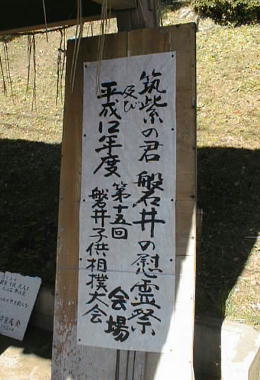 筑紫の君 磐井の慰霊祭
及び
平成12年度
第十五回
磐井子供相撲大会
会場